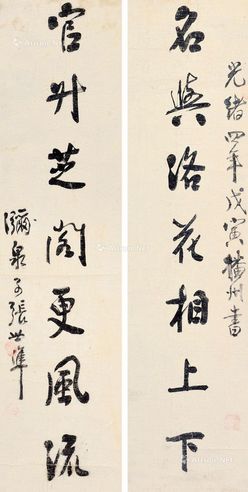 名與洛花相上下
光緒四年戊寅橫州書
官升芝閣更風流
瀰泉子張世準